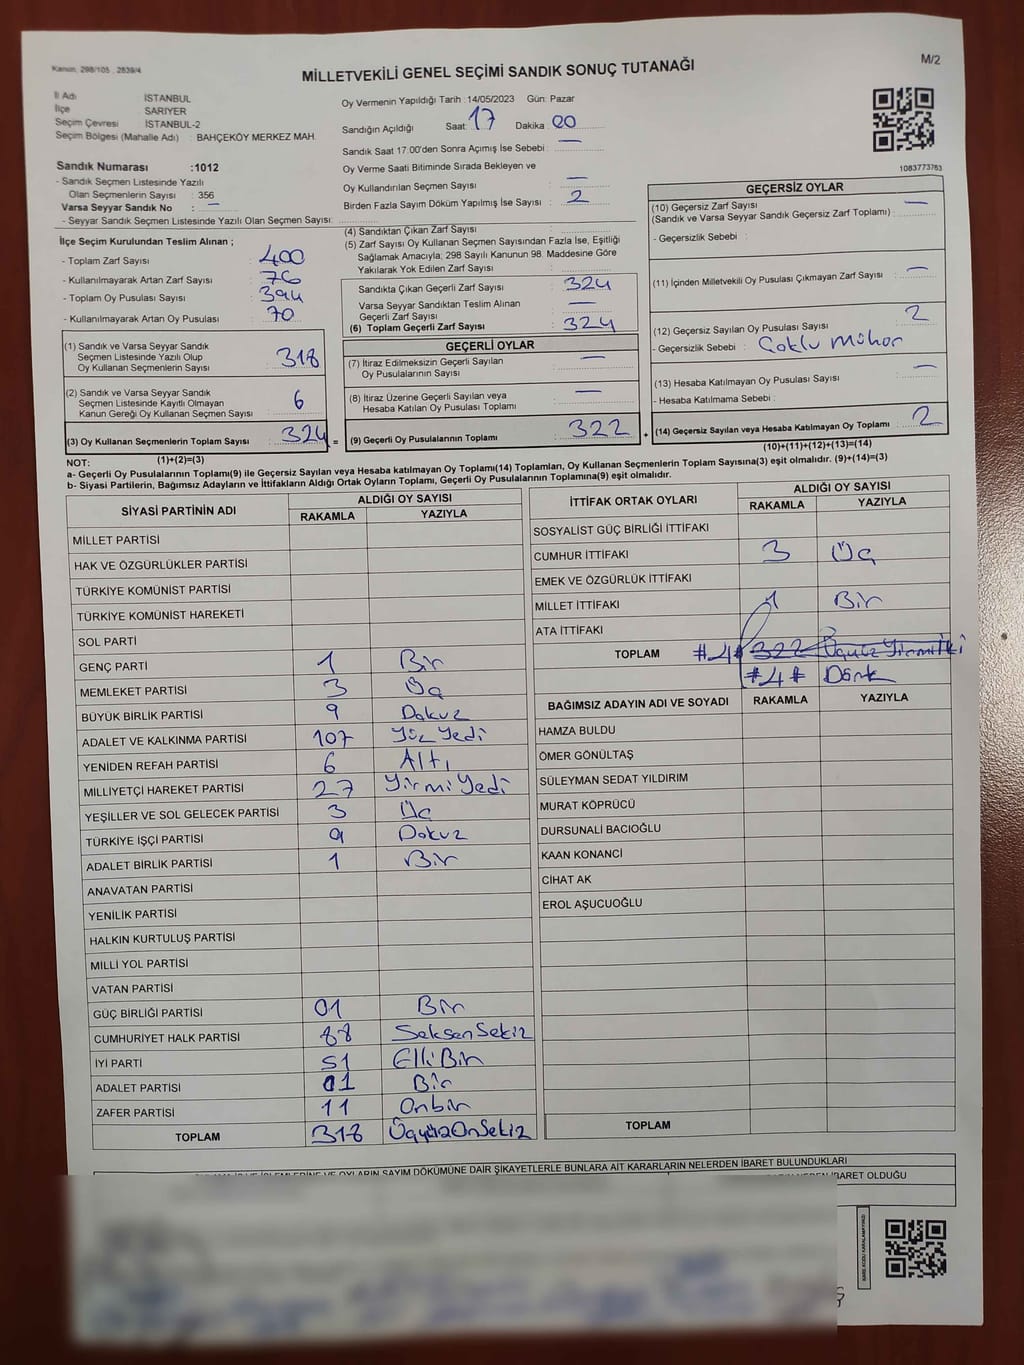 Kanun, 298/105 , 2839/4
MİLLETVEKİLİ GENEL SEÇİMİ SANDIK SONUÇ TUTANAĞI
M/2
İl Adı İSTANBUL
İlçe SARIYER
Seçim Çevresi İSTANBUL-2
Seçim Bölgesi (Mahalle Adı) : BAHÇEKÖY MERKEZ MAH.
Sandık Numarası :1012
- Sandık Seçmen Listesinde Yazılı
Olan Seçmenlerin Sayısı : 356
Varsa Seyyar Sandık No : —
- Seyyar Sandık Seçmen Listesinde Yazılı Olan Seçmen Sayısı:
Oy Vermenin Yapıldığı Tarih : 14/05/2023 Gün: Pazar
Sandığın Açıldığı Saat: 17 Dakika 00
Sandık Saat 17.00'den Sonra Açımış İse Sebebi : —
Oy Verme Saati Bitiminde Sırada Bekleyen ve
Oy Kullandırılan Seçmen Sayısı : —
Birden Fazla Sayım Döküm Yapılmış İse Sayısı : 2
1083773763
İlçe Seçim Kurulundan Teslim Alınan ;
- Toplam Zarf Sayısı : 400
- Kullanılmayarak Artan Zarf Sayısı : 76
- Toplam Oy Pusulası Sayısı : 394
- Kullanılmayarak Artan Oy Pusulası : 70
(1) Sandık ve Varsa Seyyar Sandık
Seçmen Listesinde Yazılı Olup
Oy Kullanan Seçmenlerin Sayısı : 318
(2) Sandık ve Varsa Seyyar Sandık
Seçmen Listesinde Kayıtlı Olmayan
Kanun Gereği Oy Kullanan Seçmen Sayısı : 6
(3) Oy Kullanan Seçmenlerin Toplam Sayısı : 324 =
(1)+(2)=(3)
(4) Sandıktan Çıkan Zarf Sayısı :
(5) Zarf Sayısı Oy Kullanan Seçmen Sayısından Fazla İse, Eşitliği
Sağlamak Amacıyla; 298 Sayılı Kanunun 98. Maddesine Göre
Yakılarak Yok Edilen Zarf Sayısı :
Sandıkta Çıkan Geçerli Zarf Sayısı : 324
Varsa Seyyar Sandıktan Teslim Alınan
Geçerli Zarf Sayısı : —
(6) Toplam Geçerli Zarf Sayısı : 324
GEÇERLİ OYLAR
(7) İtiraz Edilmeksizin Geçerli Sayılan
Oy Pusulalarının Sayısı : —
(8) İtiraz Üzerine Geçerli Sayılan veya
Hesaba Katılan Oy Pusulası Toplamı : —
(9) Geçerli Oy Pusulalarının Toplamı : 322 +
GEÇERSİZ OYLAR
(10) Geçersiz Zarf Sayısı
(Sandık ve Varsa Seyyar Sandık Geçersiz Zarf Toplamı) : —
- Geçersizlik Sebebi :
(11) İçinden Milletvekili Oy Pusulası Çıkmayan Zarf Sayısı : —
(12) Geçersiz Sayılan Oy Pusulası Sayısı : 2
- Geçersizlik Sebebi : Çoklu mühür
(13) Hesaba Katılmayan Oy Pusulası Sayısı : —
- Hesaba Katılmama Sebebi :
(14) Geçersiz Sayılan veya Hesaba Katılmayan Oy Toplamı : 2
(10)+(11)+(12)+(13)=(14)
NOT:
a- Geçerli Oy Pusulalarının Toplamı(9) ile Geçersiz Sayılan veya Hesaba katılmayan Oy Toplamı(14) Toplamları, Oy Kullanan Seçmenlerin Toplam Sayısına(3) eşit olmalıdır. (9)+(14)=(3)
b- Siyasi Partilerin, Bağımsız Adayların ve İttifakların Aldığı Ortak Oyların Toplamı, Geçerli Oy Pusulalarının Toplamına(9) eşit olmalıdır.
SİYASİ PARTİNİN ADI ALDIĞI OY SAYISI
RAKAMLA YAZIYLA
MİLLET PARTİSİ
HAK VE ÖZGÜRLÜKLER PARTİSİ
TÜRKİYE KOMÜNİST PARTİSİ
TÜRKİYE KOMÜNİST HAREKETİ
SOL PARTİ
GENÇ PARTİ 1 Bir
MEMLEKET PARTİSİ 3 Üç
BÜYÜK BİRLİK PARTİSİ 9 Dokuz
ADALET VE KALKINMA PARTİSİ 107 Yüz Yedi
YENİDEN REFAH PARTİSİ 6 Altı
MİLLİYETÇİ HAREKET PARTİSİ 27 Yirmi Yedi
YEŞİLLER VE SOL GELECEK PARTİSİ 3 Üç
TÜRKİYE İŞÇİ PARTİSİ 9 Dokuz
ADALET BİRLİK PARTİSİ 1 Bir
ANAVATAN PARTİSİ
YENİLİK PARTİSİ
HALKIN KURTULUŞ PARTİSİ
MİLLİ YOL PARTİSİ
VATAN PARTİSİ
GÜÇ BİRLİĞİ PARTİSİ 01 Bir
CUMHURİYET HALK PARTİSİ 88 SeksenSekiz
İYİ PARTİ 51 ElliBir
ADALET PARTİSİ 01 Bir
ZAFER PARTİSİ 11 Onbir
TOPLAM 318 ÜçyüzOnSekiz
İTTİFAK ORTAK OYLARI ALDIĞI OY SAYISI
RAKAMLA YAZIYLA
SOSYALİST GÜÇ BİRLİĞİ İTTİFAKI
CUMHUR İTTİFAKI 3 Üç
EMEK VE ÖZGÜRLÜK İTTİFAKI
MİLLET İTTİFAKI 1 Bir
ATA İTTİFAKI
TOPLAM #4# 322 ÜçyüzYirmiİki
#4# Dört
BAĞIMSIZ ADAYIN ADI VE SOYADI RAKAMLA YAZIYLA
HAMZA BULDU
ÖMER GÖNÜLTAŞ
SÜLEYMAN SEDAT YILDIRIM
MURAT KÖPRÜCÜ
DURSUNALİ BACIOĞLU
KAAN KONANCİ
CİHAT AK
EROL AŞUCUOĞLU
TOPLAM
DÖKÜMÜNE DAİR ŞİKAYETLERLE BUNLARA AİT KARARLARIN NELERDEN İBARET BULUNDUKLARI
İBARET OLDUĞU
KARE KODU KARALAMAYINIZ!